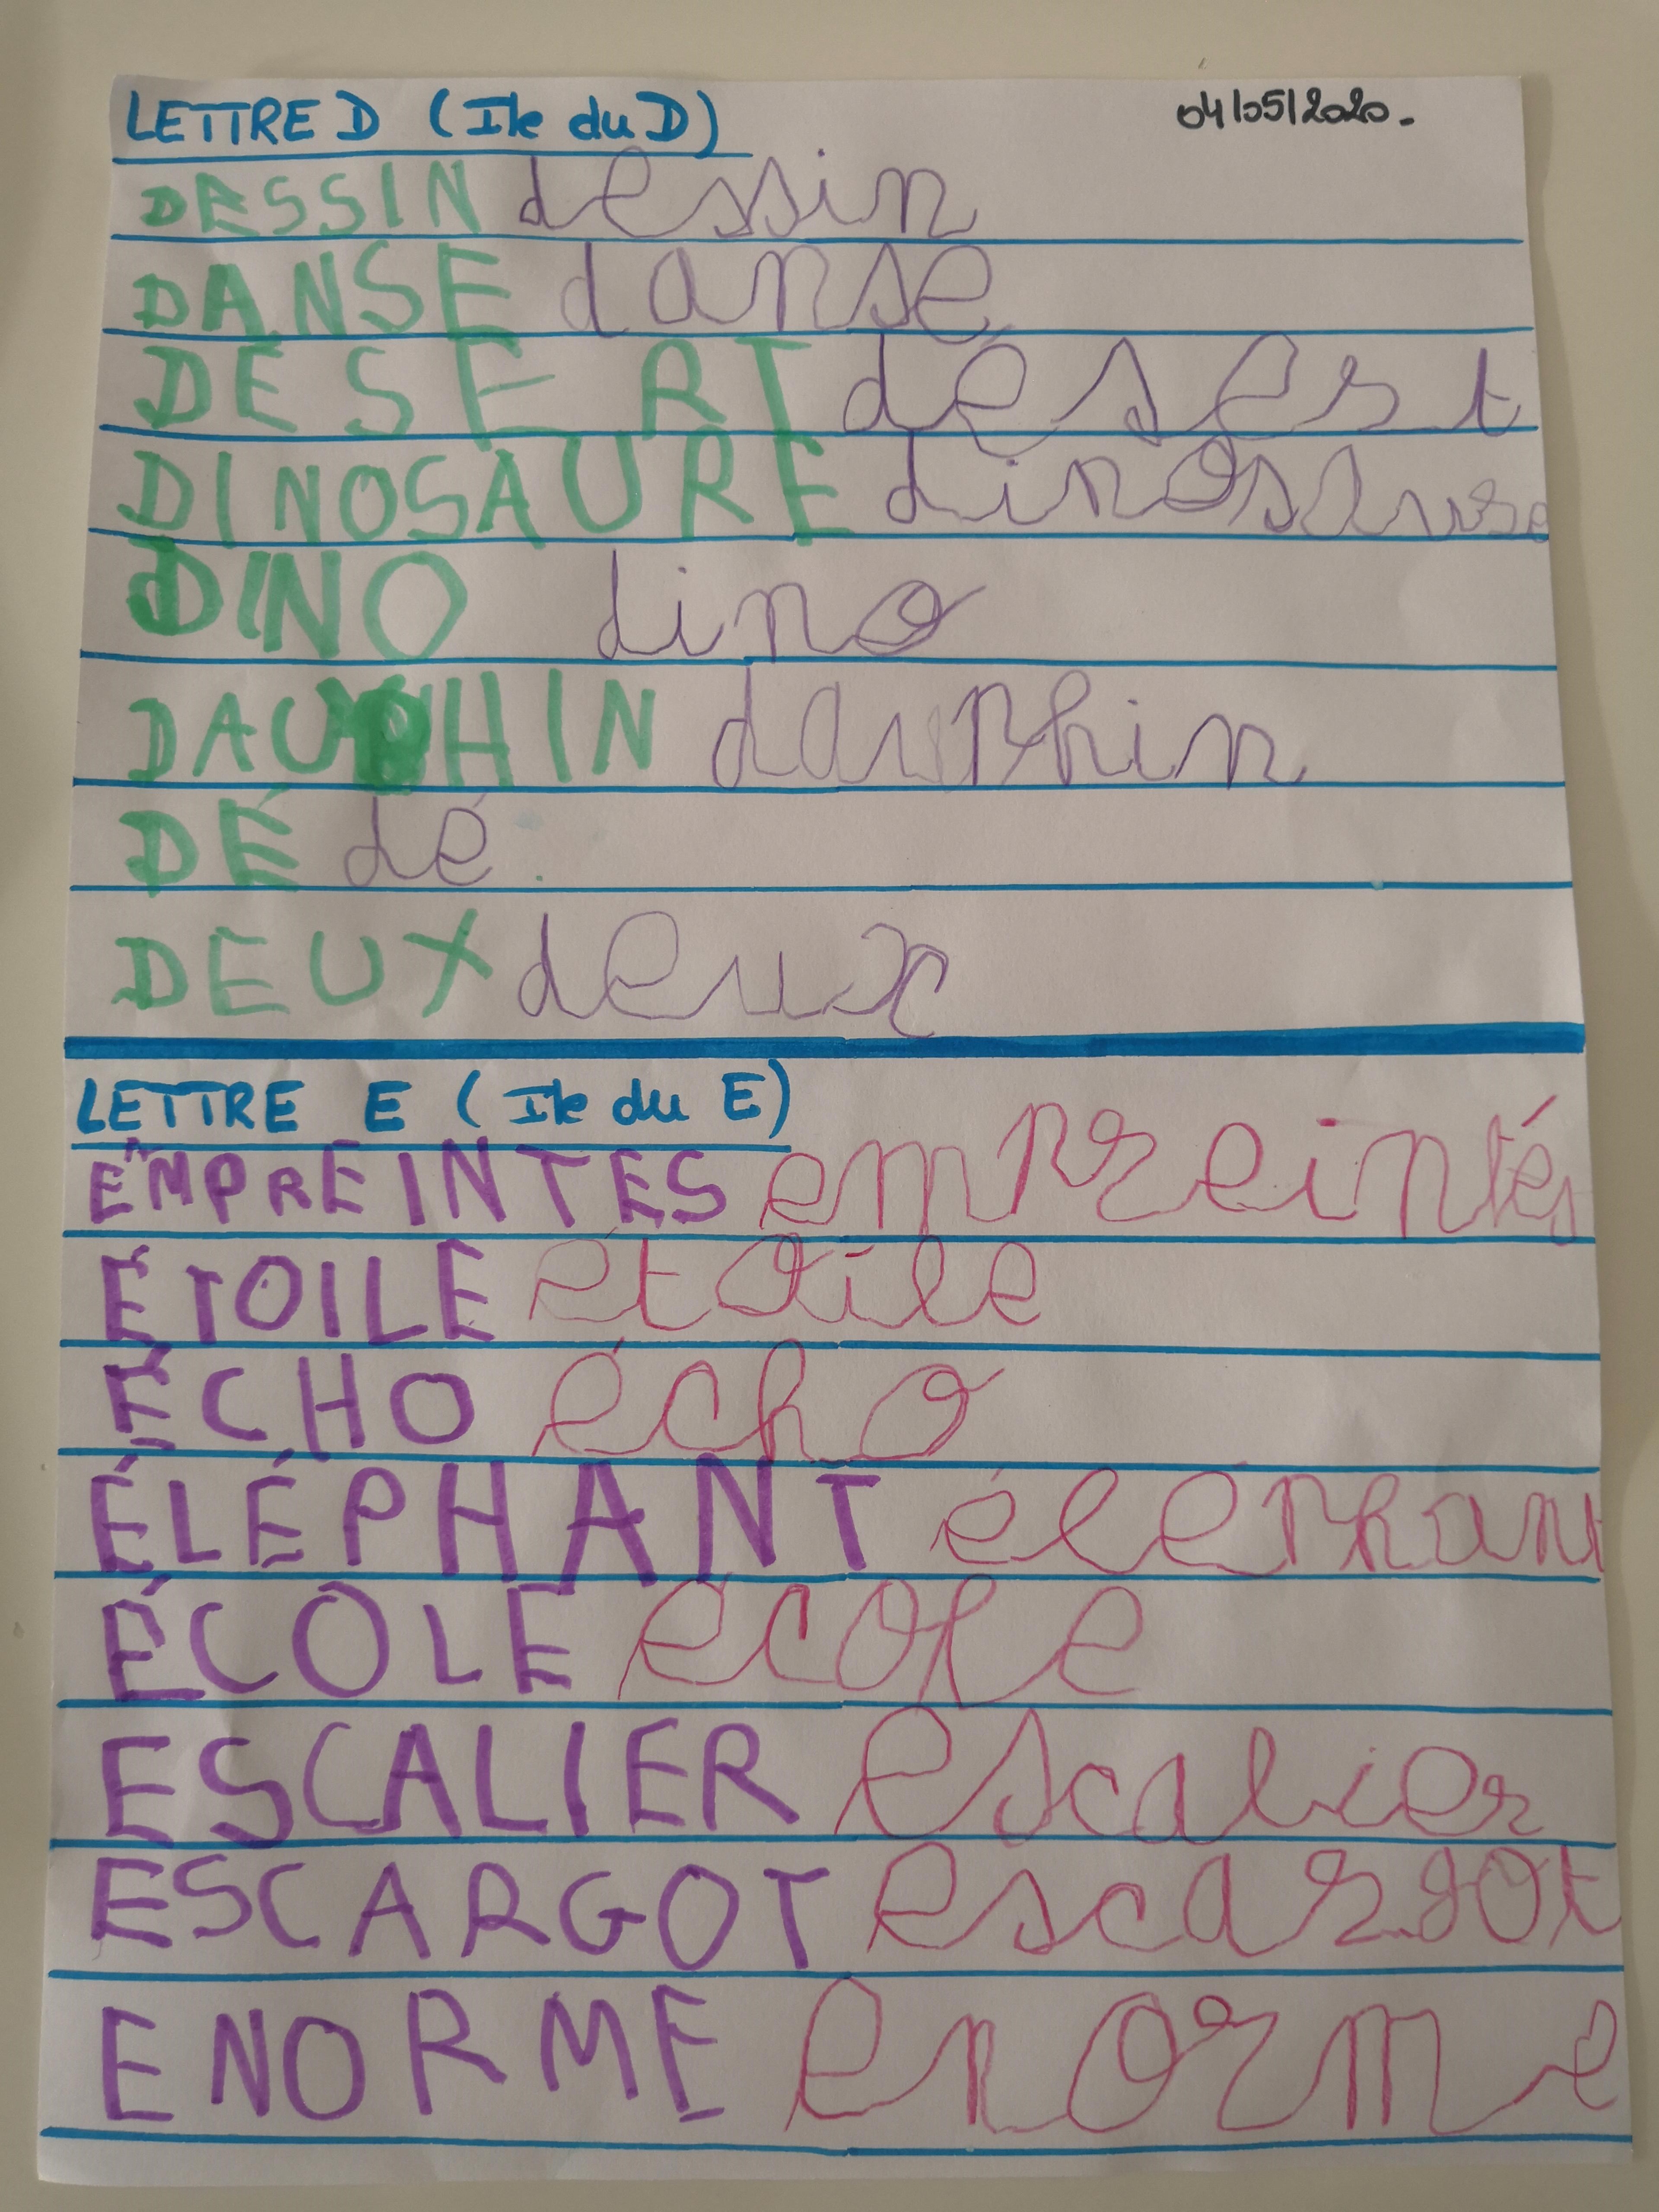 LETTRE D (Ile du D) 04/05/2020.
DESSIN dessin
DANSE danse
DÉSERT désert
DINOSAURE dinosaure
DINO dino
DAUPHIN dauphin
DÉ dé
DEUX deux
LETTRE E (Ile du E)
EMPREINTES empreintés
ÉTOILE étoile
ÉCHO écho
ÉLÉPHANT élephant
ÉCOLE école
ESCALIER escalier
ESCARGOT escargot
ENORME enorme